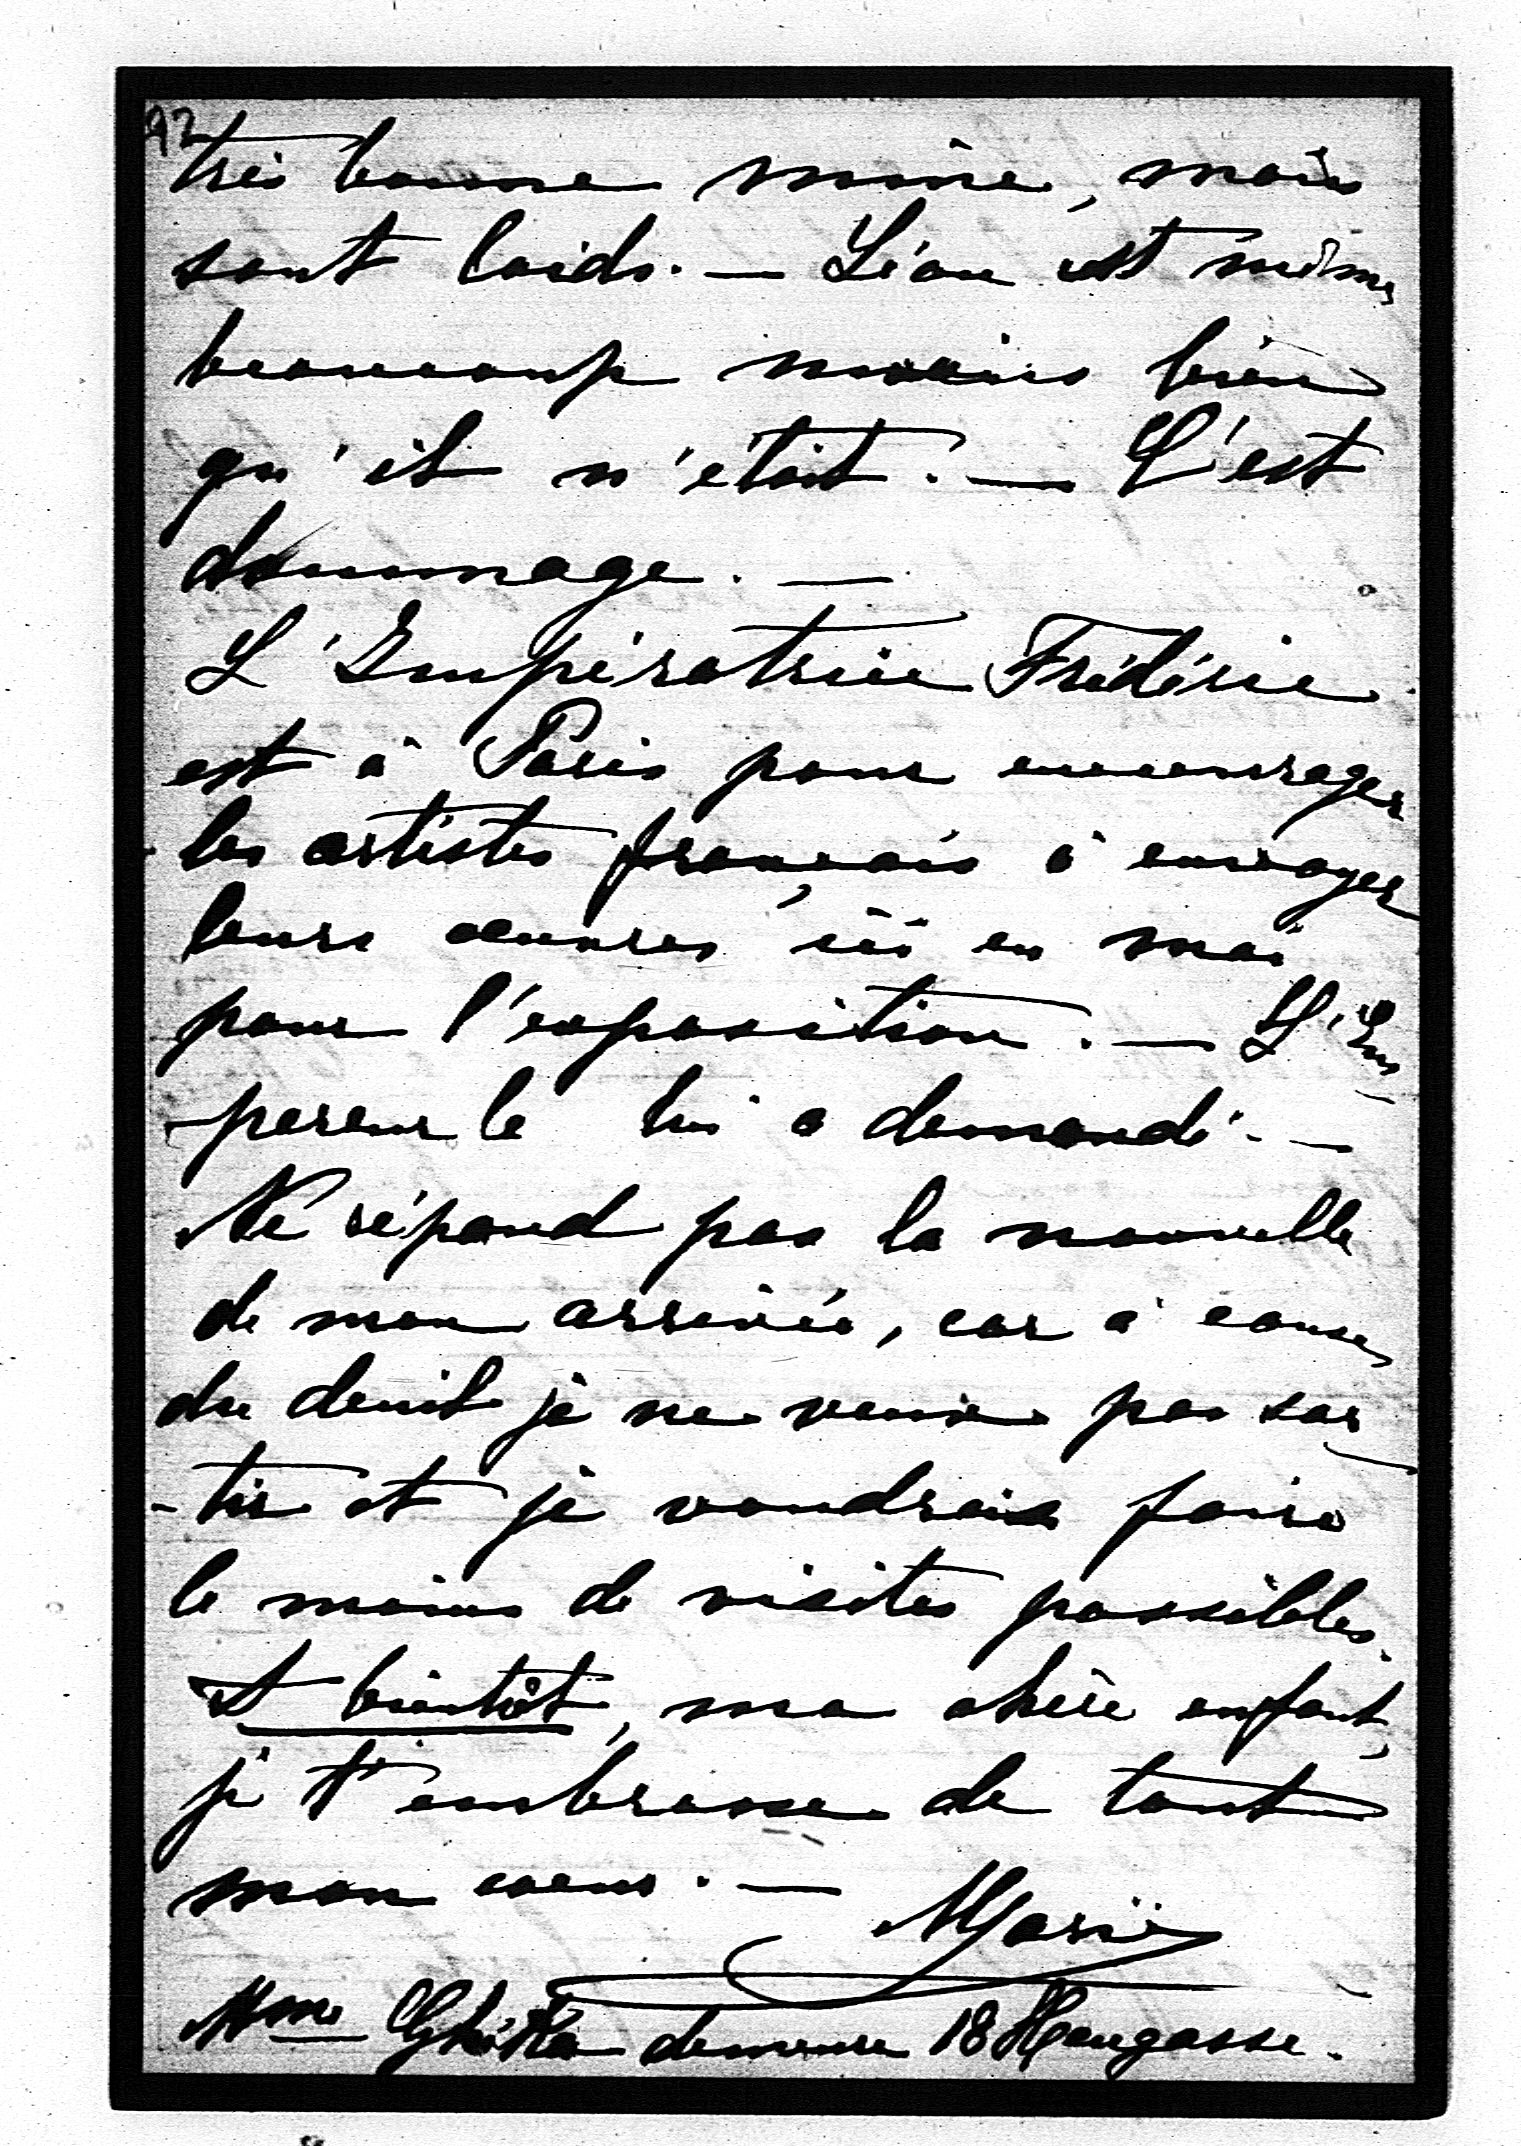 92
très bonne mine, mais
sont laids. — Léon est même
beaucoup moins bien
qu'il n'était. — C'est
dommage. —
L'Impératrice Frédéric
est à Paris pour encourager
les artistes français à envoyer
leurs œuvres ici en mai
pour l'exposition. — L'Em
pereur le lui a demandé. —
Ne répand pas la nouvelle
de mon arrivée, car à cause
du deuil je ne veux pas sor
-tir et je voudrais faire
le moins de visites possibles.
A bientôt, ma chère enfant,
je t'embrasse de tout
mon cœur. —
Marie
Mme Ghika demeure 18 Heugasse.